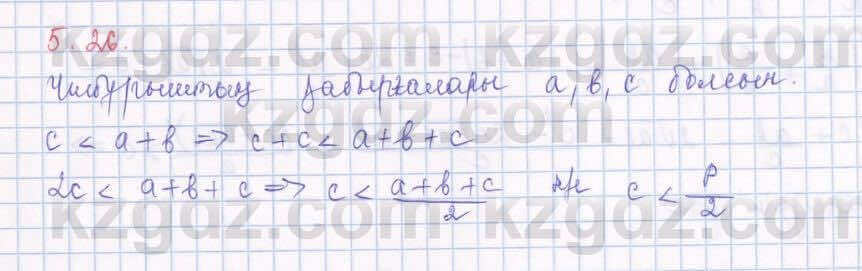 5.26.
Үшбұрыштың қабырғалары a, b, c болсын.
c < a+b => c+c < a+b+c
2c < a+b+c => c < (a+b+c)/2 нe c < P/2
kzgdz.com kzgdz.com
kzgdz.com
kzgdz.com kzgdz.com